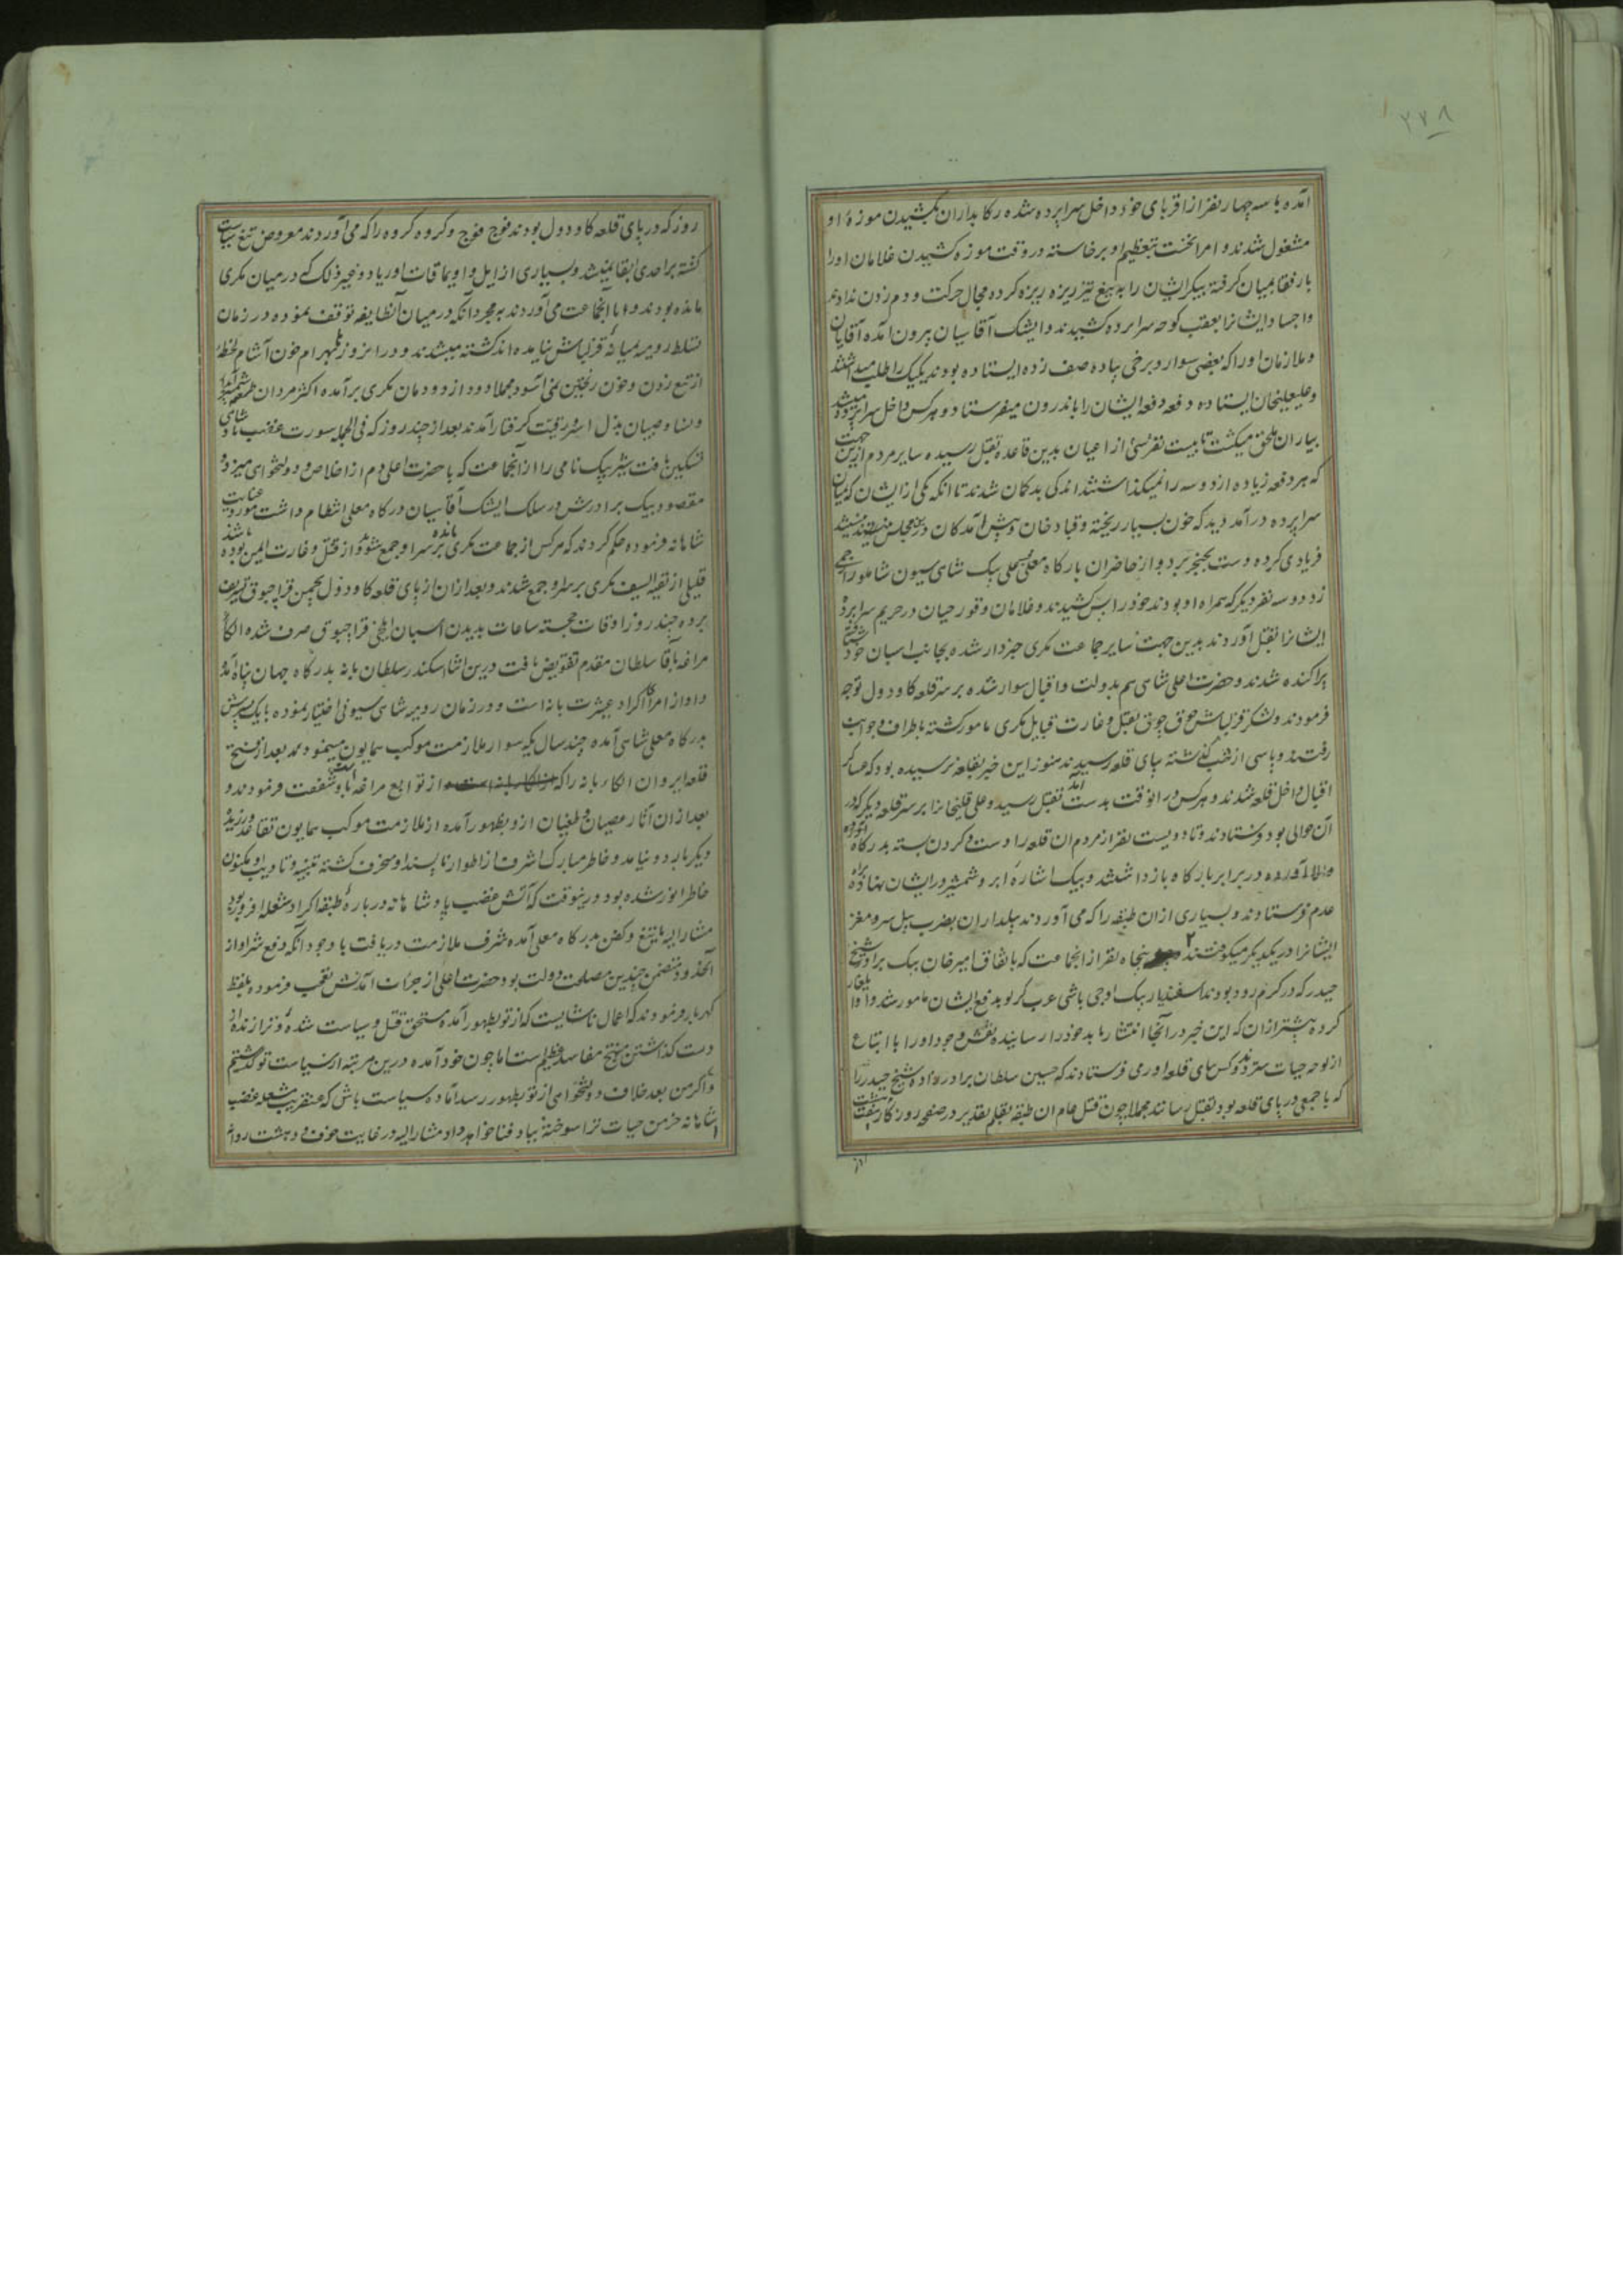 ۲۷۸
آمده با سه چهار نفر از اقربای خود داخل سراپرده شده رکابداران بکشیدن موزهٔ او
مشغول شدند و امرا نخست بتعظیم او برخاسته در وقت موزه کشیدن غلامان او را
با رفقا بمیان گرفته پیکر ایشان را به تیغ تیز ریزه ریزه کرده مجال حرکت و دم زدن ندادند
و اجساد ایشانرا بعقب کوچه سراپرده کشیدند و ایشک آقاسیان بیرون آمده آقایان
و ملازمان او را که بعضی سوار و برخی پیاده صف زده ایستاده بودند یکیک را طلب میداشتند
و علیقلیخان ایستاده دفعه دفعه ایشان را باندرون میفرستاد و هر کس داخل سراپرده میشد
بیاران ملحق میگشت تا بیست نفر کسی از اعیان بدین قاعده بقتل رسیده سایر مردم ازین جهت
که هر دفعه زیاده از دو سه را نمیگذاشتند اندکی بدگمان شدند تا آنکه یکی از ایشان که بمیان
سراپرده درآمد دید که خون بسیار ریخته و قباد خان و پیش آمدگان در مجلس نیستند
فریادی کرده دست بخنجر برد و از حاضران بارگاه معلی بیک شاهی سیون شاملو را زخمی
زد دو سه نفر دیگر که همراه او بودند خود را پس کشیدند و غلامان و قورچیان در حریم سراپرده
ایشانرا بقتل آوردند بدین جهت سایر جماعت مکری خبردار شده بجانب اسبان خود شتافته
پراکنده شدند و حضرت اعلی شاهی هم بدولت و اقبال سوار شده بر سر قلعه کاودول توجه
فرمودند و لشکر قزلباش جوق جوق بقتل و غارت قبایل مکری مامور گشته باطراف و جوانب
رفتند و پاسی از شب گذشته بپای قلعه رسیدند هنوز این خبر بقلعه نرسیده بود که عساکر
اقبال داخل قلعه شدند و هر کس در آنوقت بدست آمد بقتل رسید و علی قلیخانرا بر سر قلعه دیگر که در
آن حوالی بود فرستادند و تا دویست نفر از مردم آن قلعه را دست و گردن بسته بدرگاه
والا آورده در برابر بارگاه بازداشتند و بیک اشارهٔ ابرو شمشیر در ایشان نهاده براه
عدم فرستادند و بسیاری ازان طبقه را که می آوردند بیلداران بضرب بیل سر و مغز
ایشانرا در یکدیگر میکوفتند پنجاه نفر از انجماعت که باتفاق امیرخان بیک برادر شیخ
حیدر که در گرم رود بودند اسفندیار بیک اوجی باشی عرب گرلو بدفع ایشان مامور شد و او ایلغار
کرده پیشتر ازان که این خبر در آنجا انتشار یابد خود را رسانیده نقش وجود او را با اتباع
از لوحه حیات سترد و کس بپای قلعه اورمی فرستادند که حسین سلطان برادرزاده شیخ حیدر را
که با جمعی در پای قلعه بود بقتل رسانند مجملا چون قتل عام ان طبقه بقلم تقدیر در صفحه روزگار ثبت
روز که در پای قلعه کاودول بودند فوج فوج و گروه گروه را که می آوردند معروض تیغ سیاست
گشته بر احدی ابقا نمیشد و بسیاری از ایل و اویماقات اوریاد و غیر ذلک که در میان مکری
مانده بودند و با انجماعت می آوردند به مجرد آنکه در میان آنطایفه توقف نموده در زمان
تسلط رومیه بمیانه قزلباش نیامده اند کشته میشدند و در ان روز بهرام خون آشام لحظهٔ
از تیغ زدن و خون ریختن نمی آسود مجملا دود از دودمان مکری برآمده اکثر مردان طعمه شمشیر
و نسا و صبیان بذل اسر و رقیت گرفتار آمدند بعد از چند روز که فی الجمله سورت غضب شاهی
تسکین یافت شیر بیک نامی را از انجماعت که با حضرت اعلی دم از اخلاص و دولتخواهی میزد و
مقصود بیک برادرش در سلک ایشک آقاسیان درگاه معلی انتظام داشت مورد عنایت
شاهانه فرموده حکم کردند که هر کس از جماعت مکری مانده بر سر او جمع شود از قتل و غارت ایمن بوده باشند
قلیلی از بقیه السیف مکری بر سر او جمع شدند و بعد ازان از پای قلعه کاودول بچمن قراچبوق تشریف
برده چند روز اوقات خجسته ساعات بدیدن اسبان ایلخی قراچبوق صرف شده الکاء
مراغه بآقا سلطان مقدم تفویض یافت درین اثنا اسکندر سلطان بانه بدرگاه جهان پناه آمد
و او از امراء اکراد عشرت بانه است و در زمان رومیه شاهی سیونی اختیار نموده با یک پسرش
بدرگاه معلی شاهی آمده چند سال یکه سوار ملازمت موکب همایون مینمود بعد از فتح
قلعه ایروان الکاء بانه را که از توابع مراغه است باو شفقت فرمودند و
بعد از ان آثار عصیان و طغیان ازو بظهور آمده از ملازمت موکب همایون تقاعد ورزیده
دیگر باردو نیامد و خاطر مبارک اشرف از اطوار ناپسند او منحرف گشته تنبیه و تادیب او مکنون
خاطر انور شده بود درینوقت که آتش غضب پادشاهانه در باره طبقه اکراد شعله افروز بود
مشارالیه با تیغ و کفن بدرگاه معلی آمده شرف ملازمت دریافت با وجود آنکه دفع شر او از
آنحدود متضمن چندین مصلحت دولت بود حضرت اعلی از جرأت آمدنش تعجب فرموده بلفظ
گهربار فرمودند که اعمال ناشایست که از تو بظهور آمده مستحق قتل و سیاست شده و ترا زنده از
دست گذاشتن منتج مفاسد عظیم است اما چون خود آمده درین مرتبه از سیاست تو گذشتیم
و اگر من بعد خلاف دولتخواهی از تو بظهور رسد آماده سیاست باش که عنقریب شعله غضب
شاهانه خرمن حیات ترا سوخته بباد فنا خواهد داد مشارالیه در غایت خوف و دهشت روانه